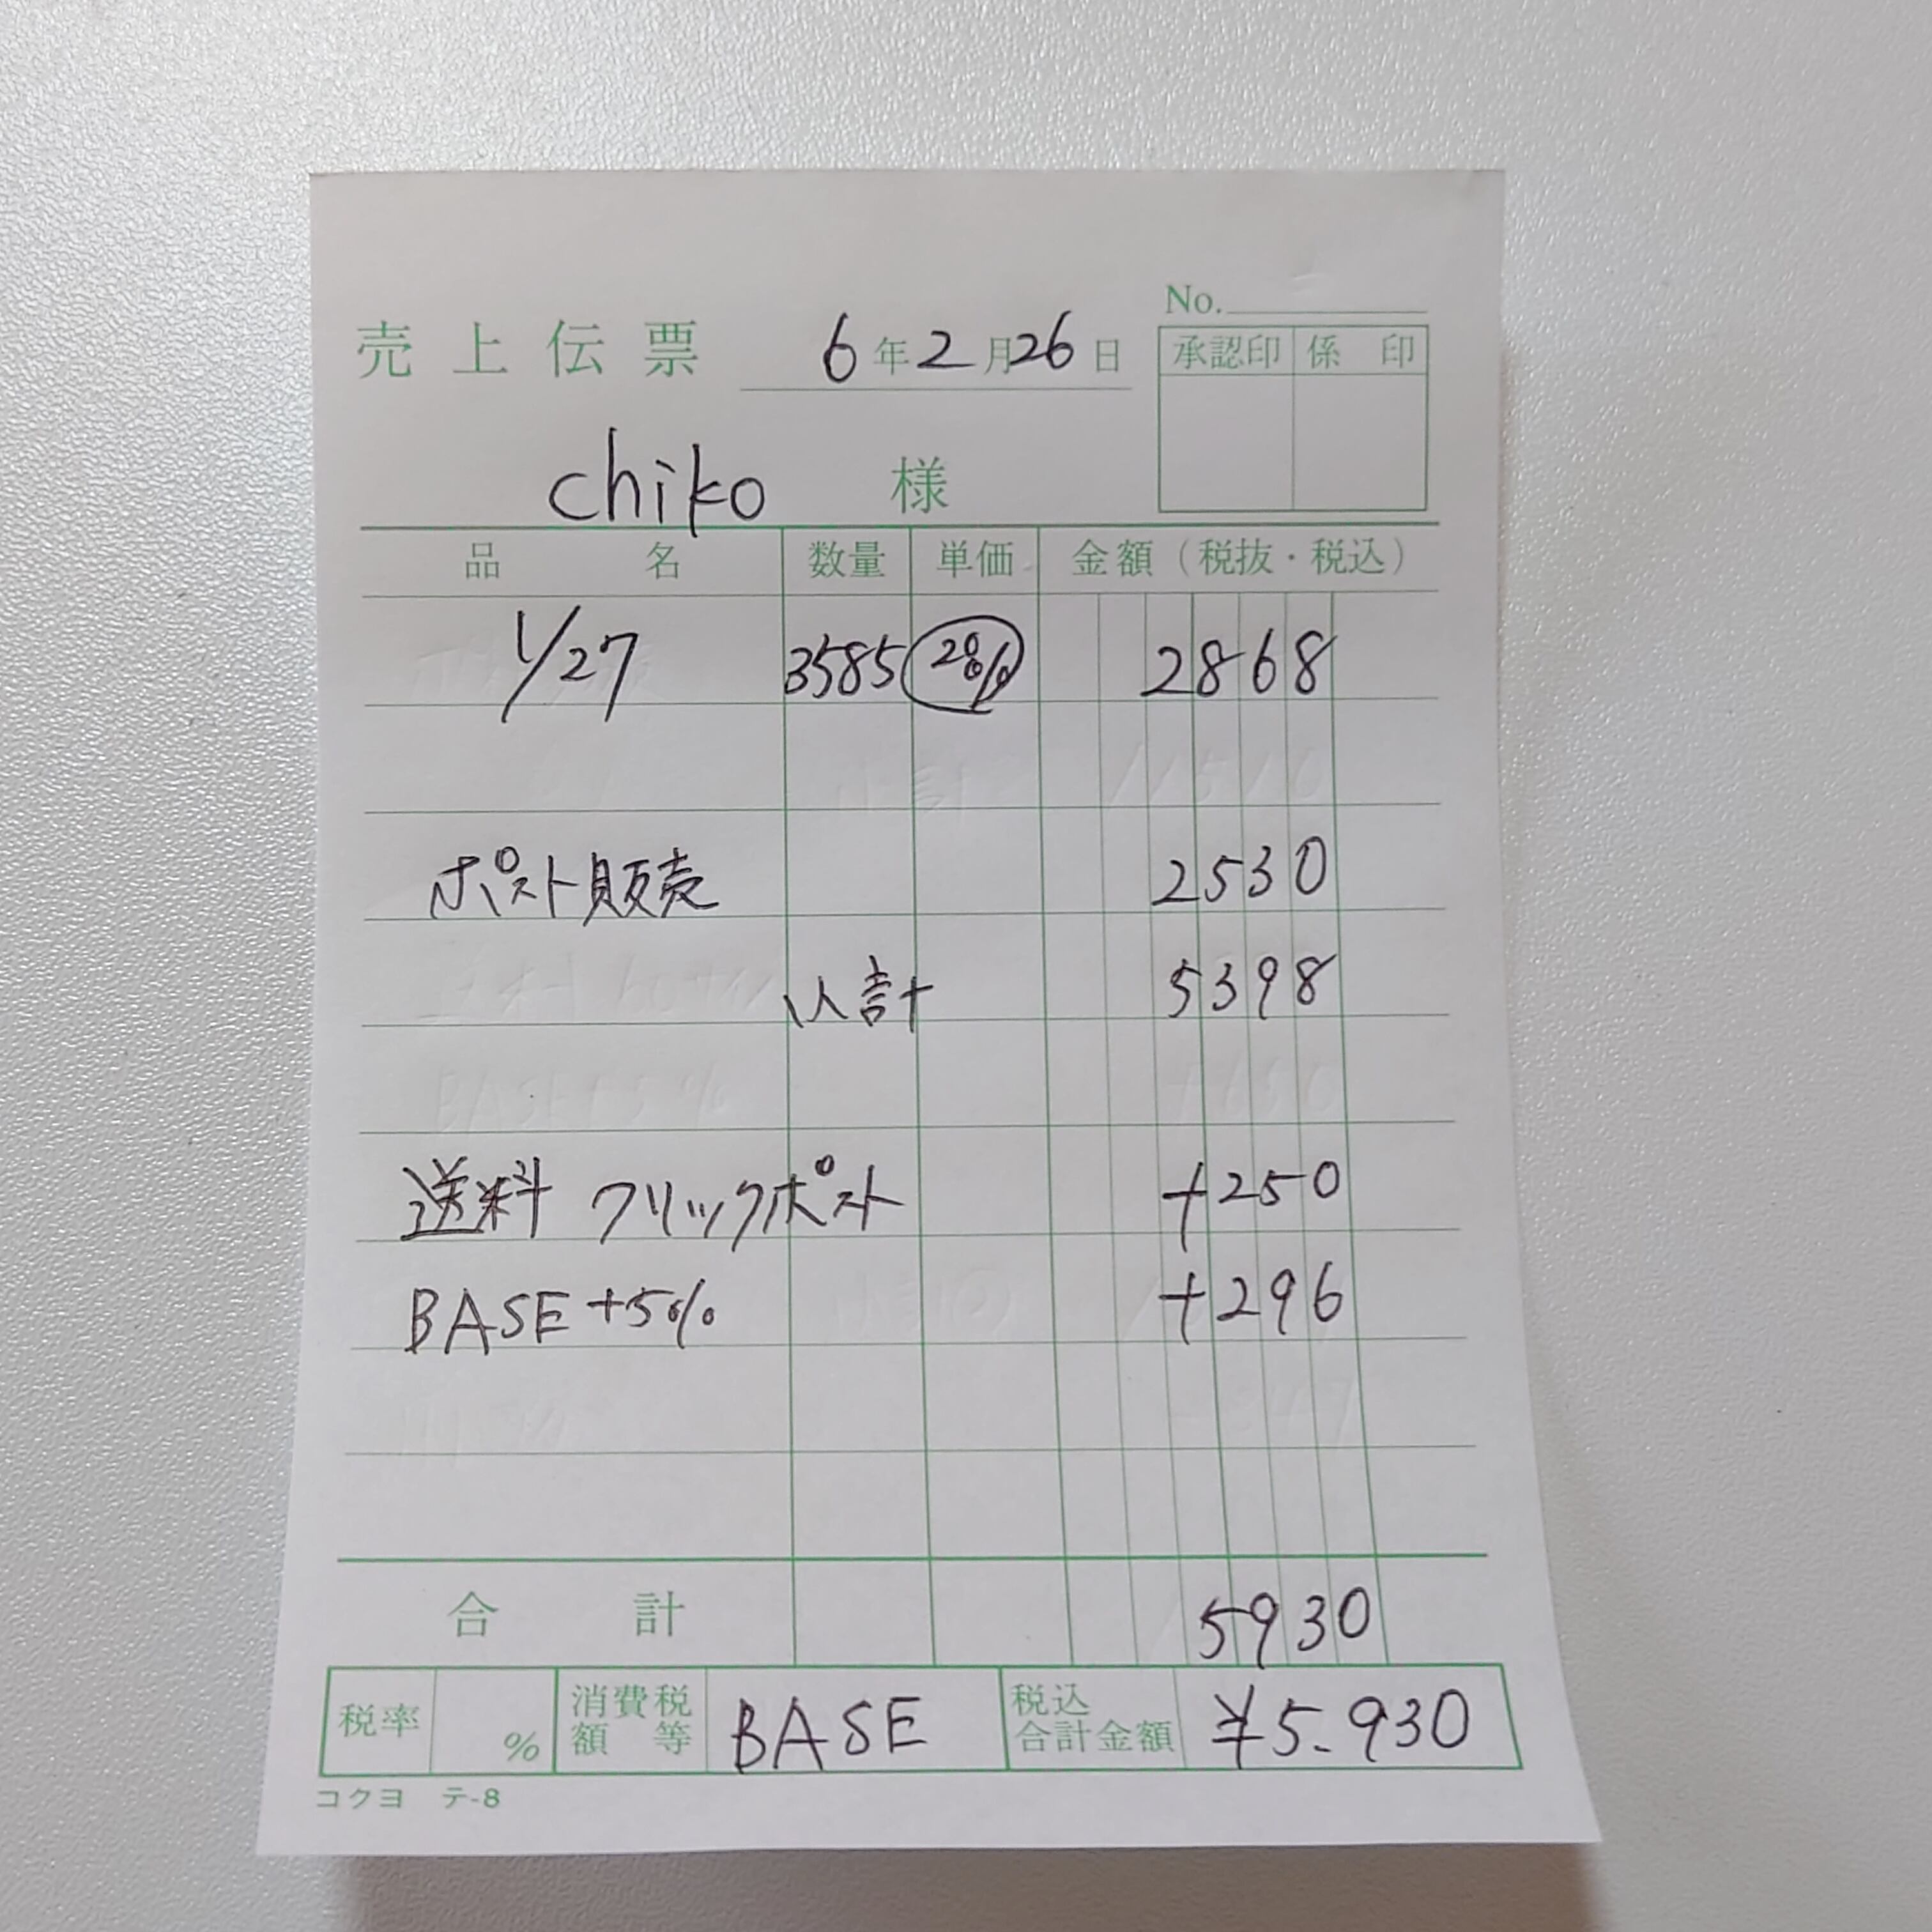 No.
売上伝票 6年2月26日
承認印 係印
chiko 様
品名 数量 単価 金額（税抜・税込）
1/27 3585 20% 2868
ポスト販売 2530
小計 5398
送料 クリックポスト +250
BASE+5% +296
合計 5930
税率 % 消費税額等 BASE 税込合計金額 ¥5.930
コクヨ テ-8